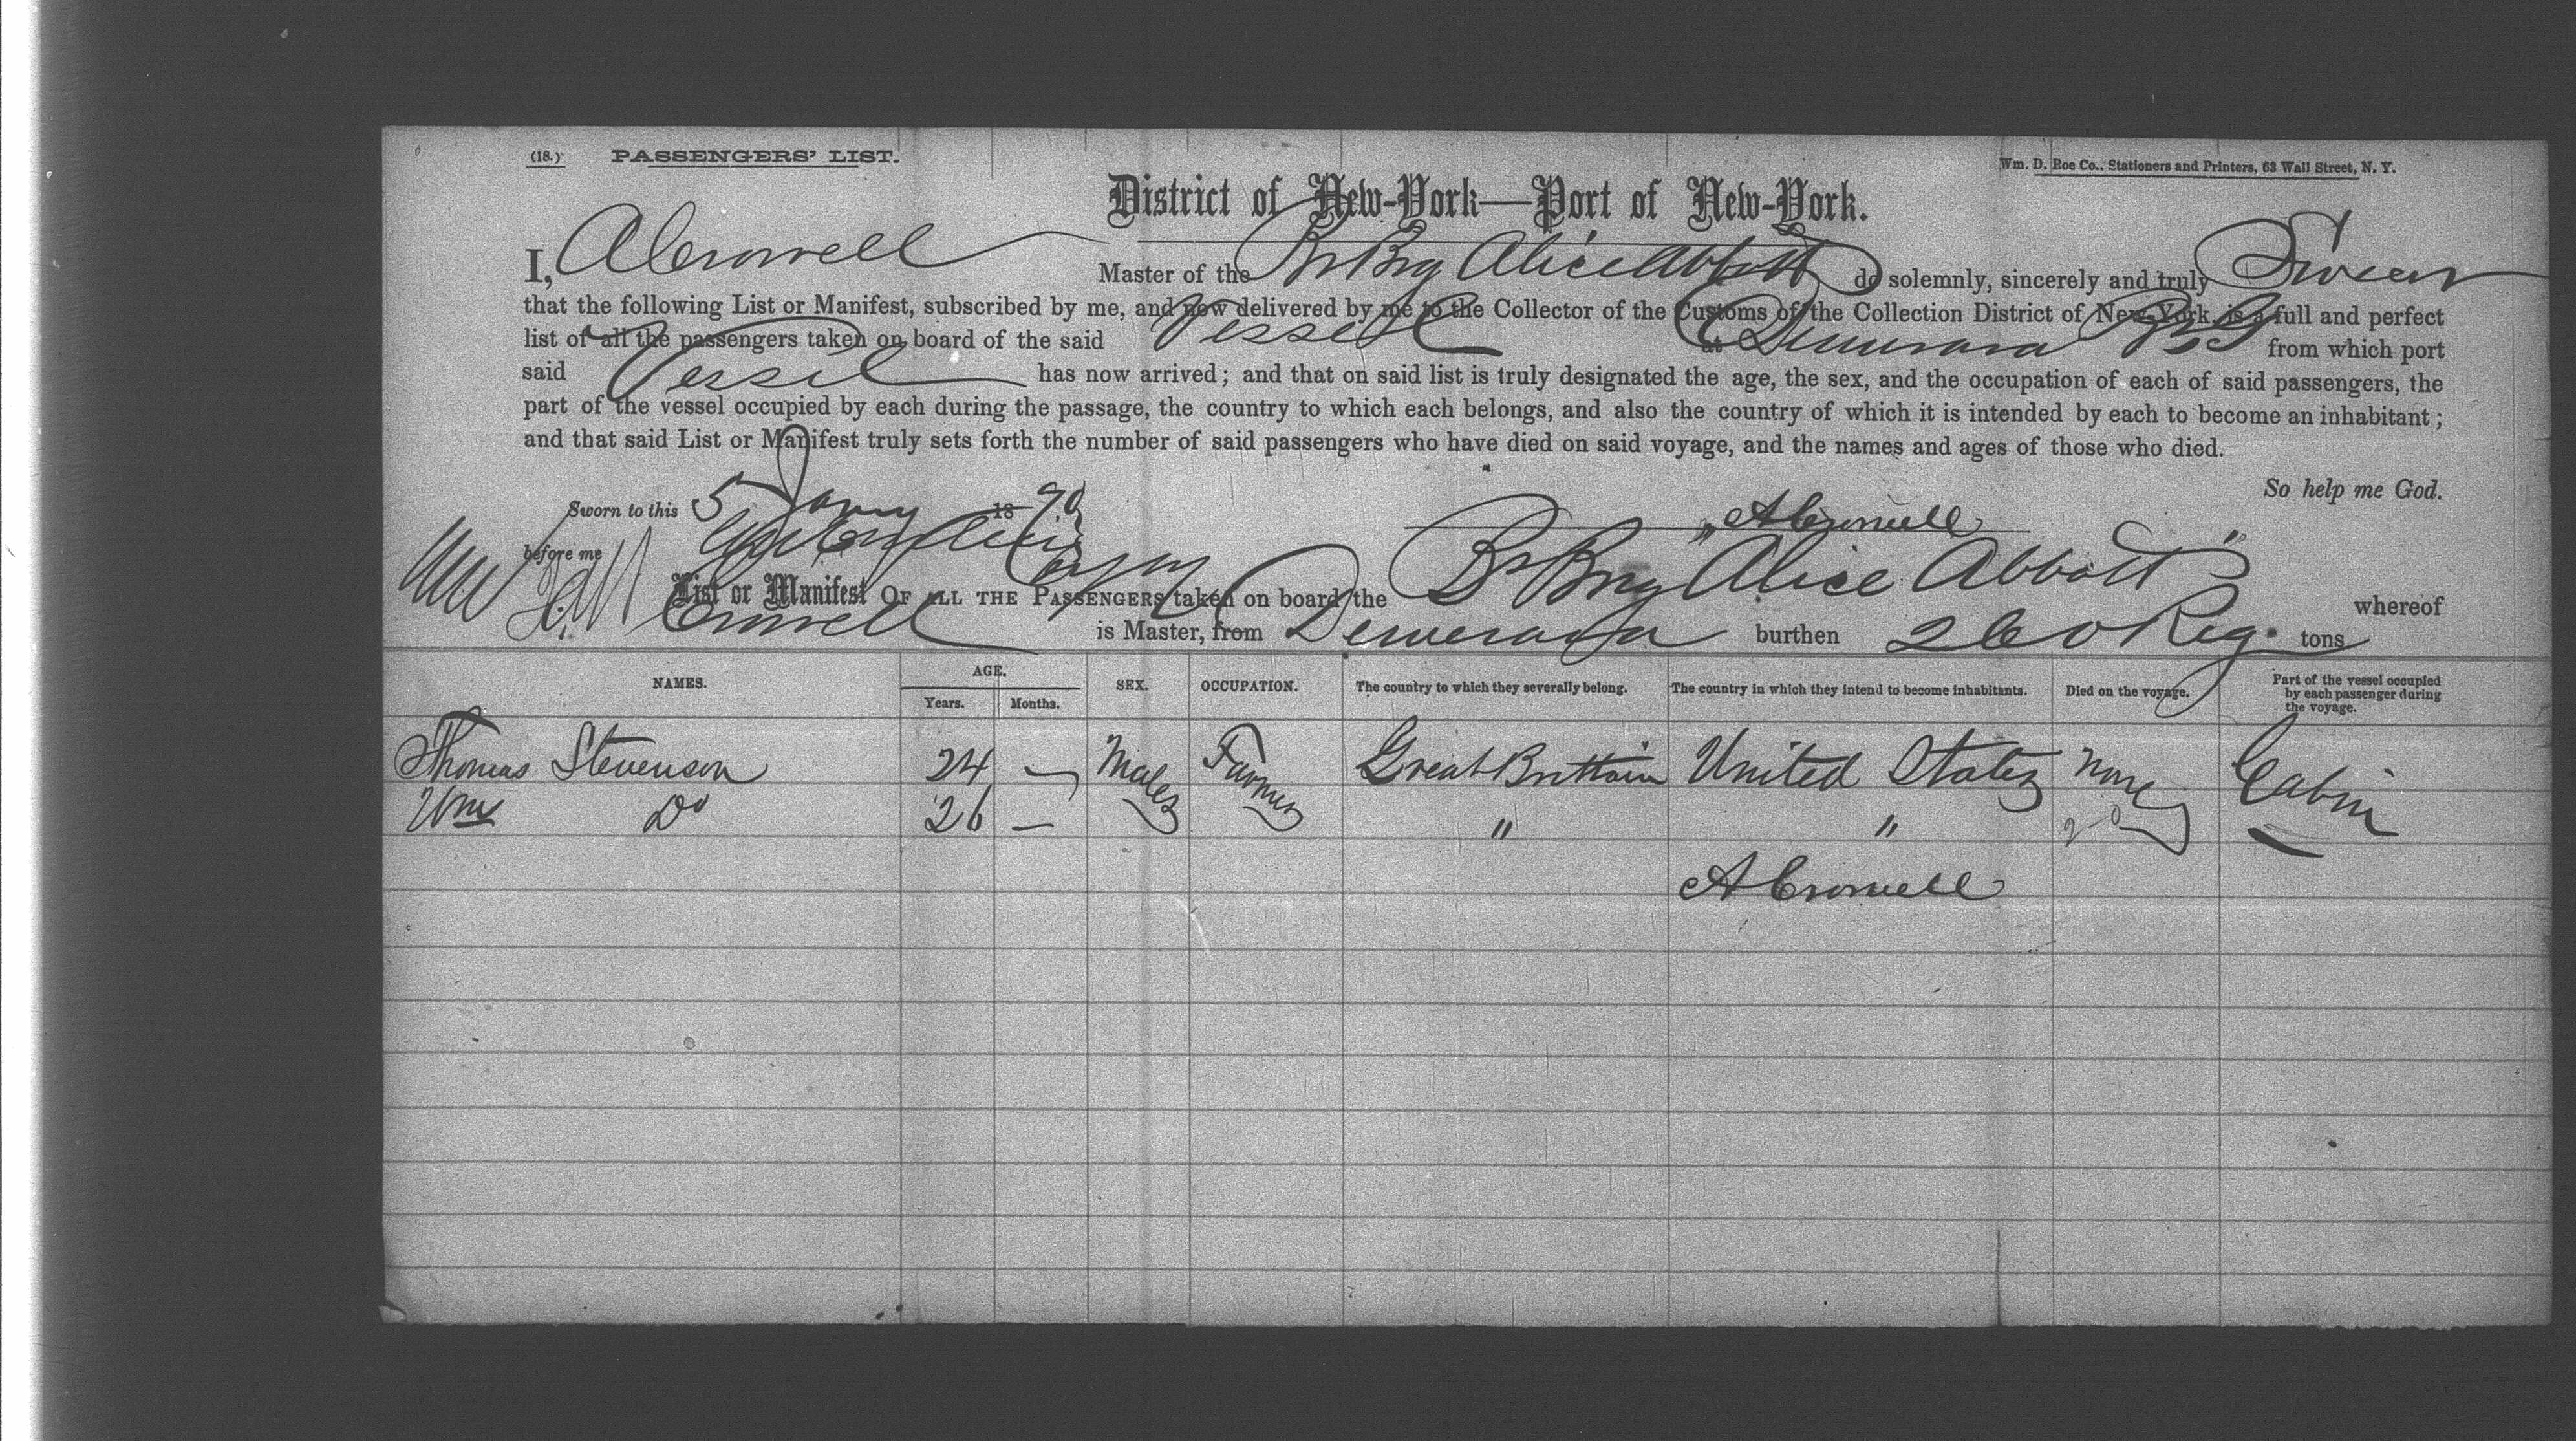 (18.) PASSENGERS' LIST. Wm. D. Roe Co., Stationers and Printers, 63 Wall Street, N. Y.
District of New-York—Port of New-York.
I, A Crowell Master of the Br Brg Alice Abbott do solemnly, sincerely and truly Swear
that the following List or Manifest, subscribed by me, and now delivered by me to the Collector of the Customs of the Collection District of New-York, is a full and perfect
list of all the passengers taken on board of the said Vessel at Demerara BG from which port
said Vessel has now arrived; and that on said list is truly designated the age, the sex, and the occupation of each of said passengers, the
part of the vessel occupied by each during the passage, the country to which each belongs, and also the country of which it is intended by each to become an inhabitant;
and that said List or Manifest truly sets forth the number of said passengers who have died on said voyage, and the names and ages of those who died.
So help me God.
Sworn to this 5 Jany 1890 A Crowell
before me
List or Manifest OF ALL THE PASSENGERS taken on board the Br Brg "Alice Abbott" whereof
Crowell is Master, from Demerara burthen 260 Reg. tons
NAMES. AGE. Years. Months. SEX. OCCUPATION. The country to which they severally belong. The country in which they intend to become inhabitants. Died on the voyage. Part of the vessel occupied by each passenger during the voyage.
Thomas Stevenson 24 — Males Farmers Great Brittain United States None Cabin
Wm Do 26 — " "
A Crowell